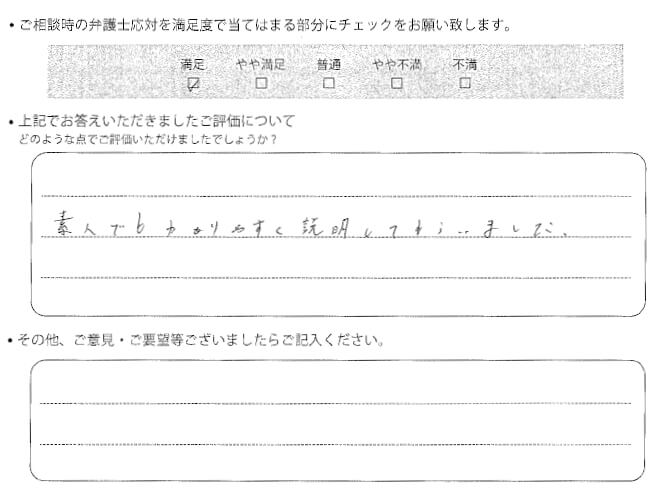 • ご相談時の弁護士応対を満足度で当てはまる部分にチェックをお願い致します。
満足 やや満足 普通 やや不満 不満
☑ ☐ ☐ ☐ ☐
• 上記でお答えいただきましたご評価について
どのような点でご評価いただけましたでしょうか？
素人でもわかりやすく説明してもらいました。
• その他、ご意見・ご要望等ございましたらご記入ください。